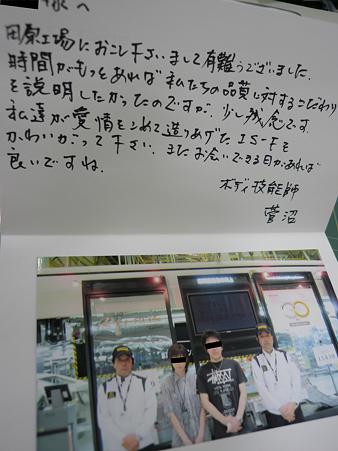 様へ
田原工場におこし下さいまして有難うございました.
時間がもっとあれば私たちの品質に対するこだわり
を説明したかったのですが、少し残念です.
私達が愛情をこめて造りあげた IS-Fを
かわいがって下さい. またお会いできる日があれば
良いですね.
ボディ技能師
菅沼
30